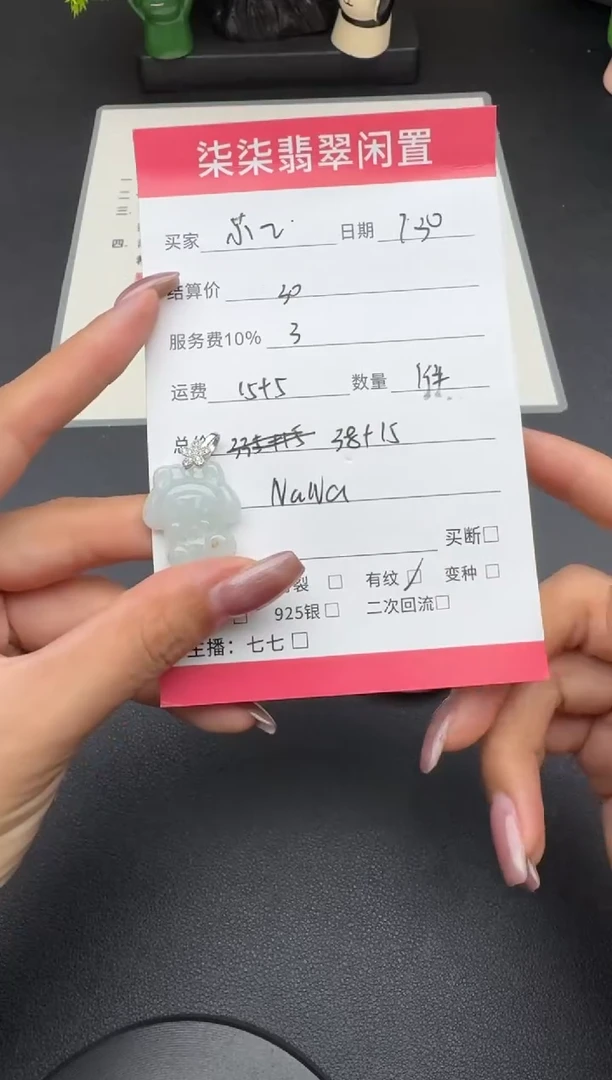 柒柒翡翠闲置
买家 日期 7.30
结算价 30
服务费10% 3
运费 15+5 数量 1件
总 38+15
NaWa
买断□
裂 □ 有纹☑ 变种□
□ 925银□ 二次回流□
主播：七七□
一
二
三
四.